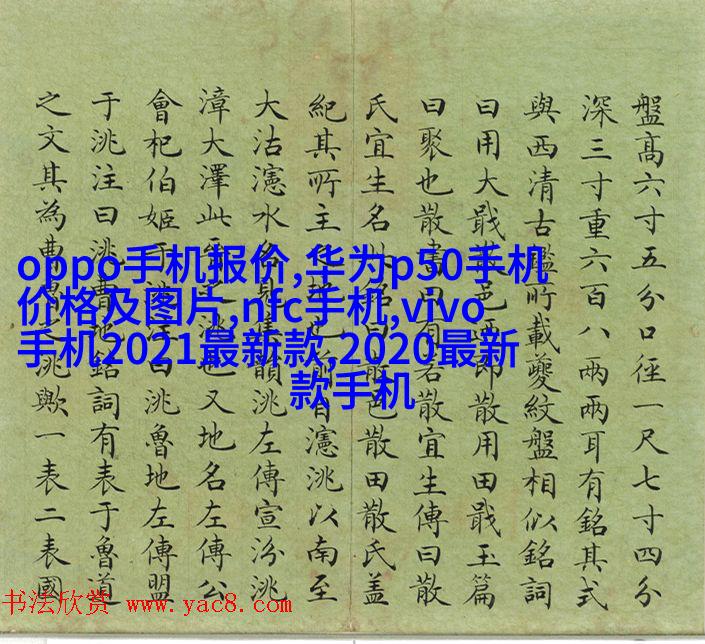 oppo手机报价,华为p50手机
价格及图片,nfc手机,vivo
手机2021最新款,2020最新
款手机
盤高六寸五分口徑一尺七寸四分
深三寸重六百八兩兩耳有銘其式
與西清古鑑所載夔紋盤相似銘詞
曰用大散邑迺即散用田玉篇
曰聚也散書曰有若散宜生傳曰散
氏宜生名以銘曰散邑散田散氏蓋
紀其所主之地也前自瀗洮以南至
大沽瀗水名見集韻洮左傳宣汾洮
漳大澤此晉之洮也又地名左傳公
會杞伯姬于洮注曰洮魯地左傳盟
于洮注曰洮曹地銘詞有表于魯道
之文其為曹之洮歟一表二表國
书法欣赏 www.yac8.com